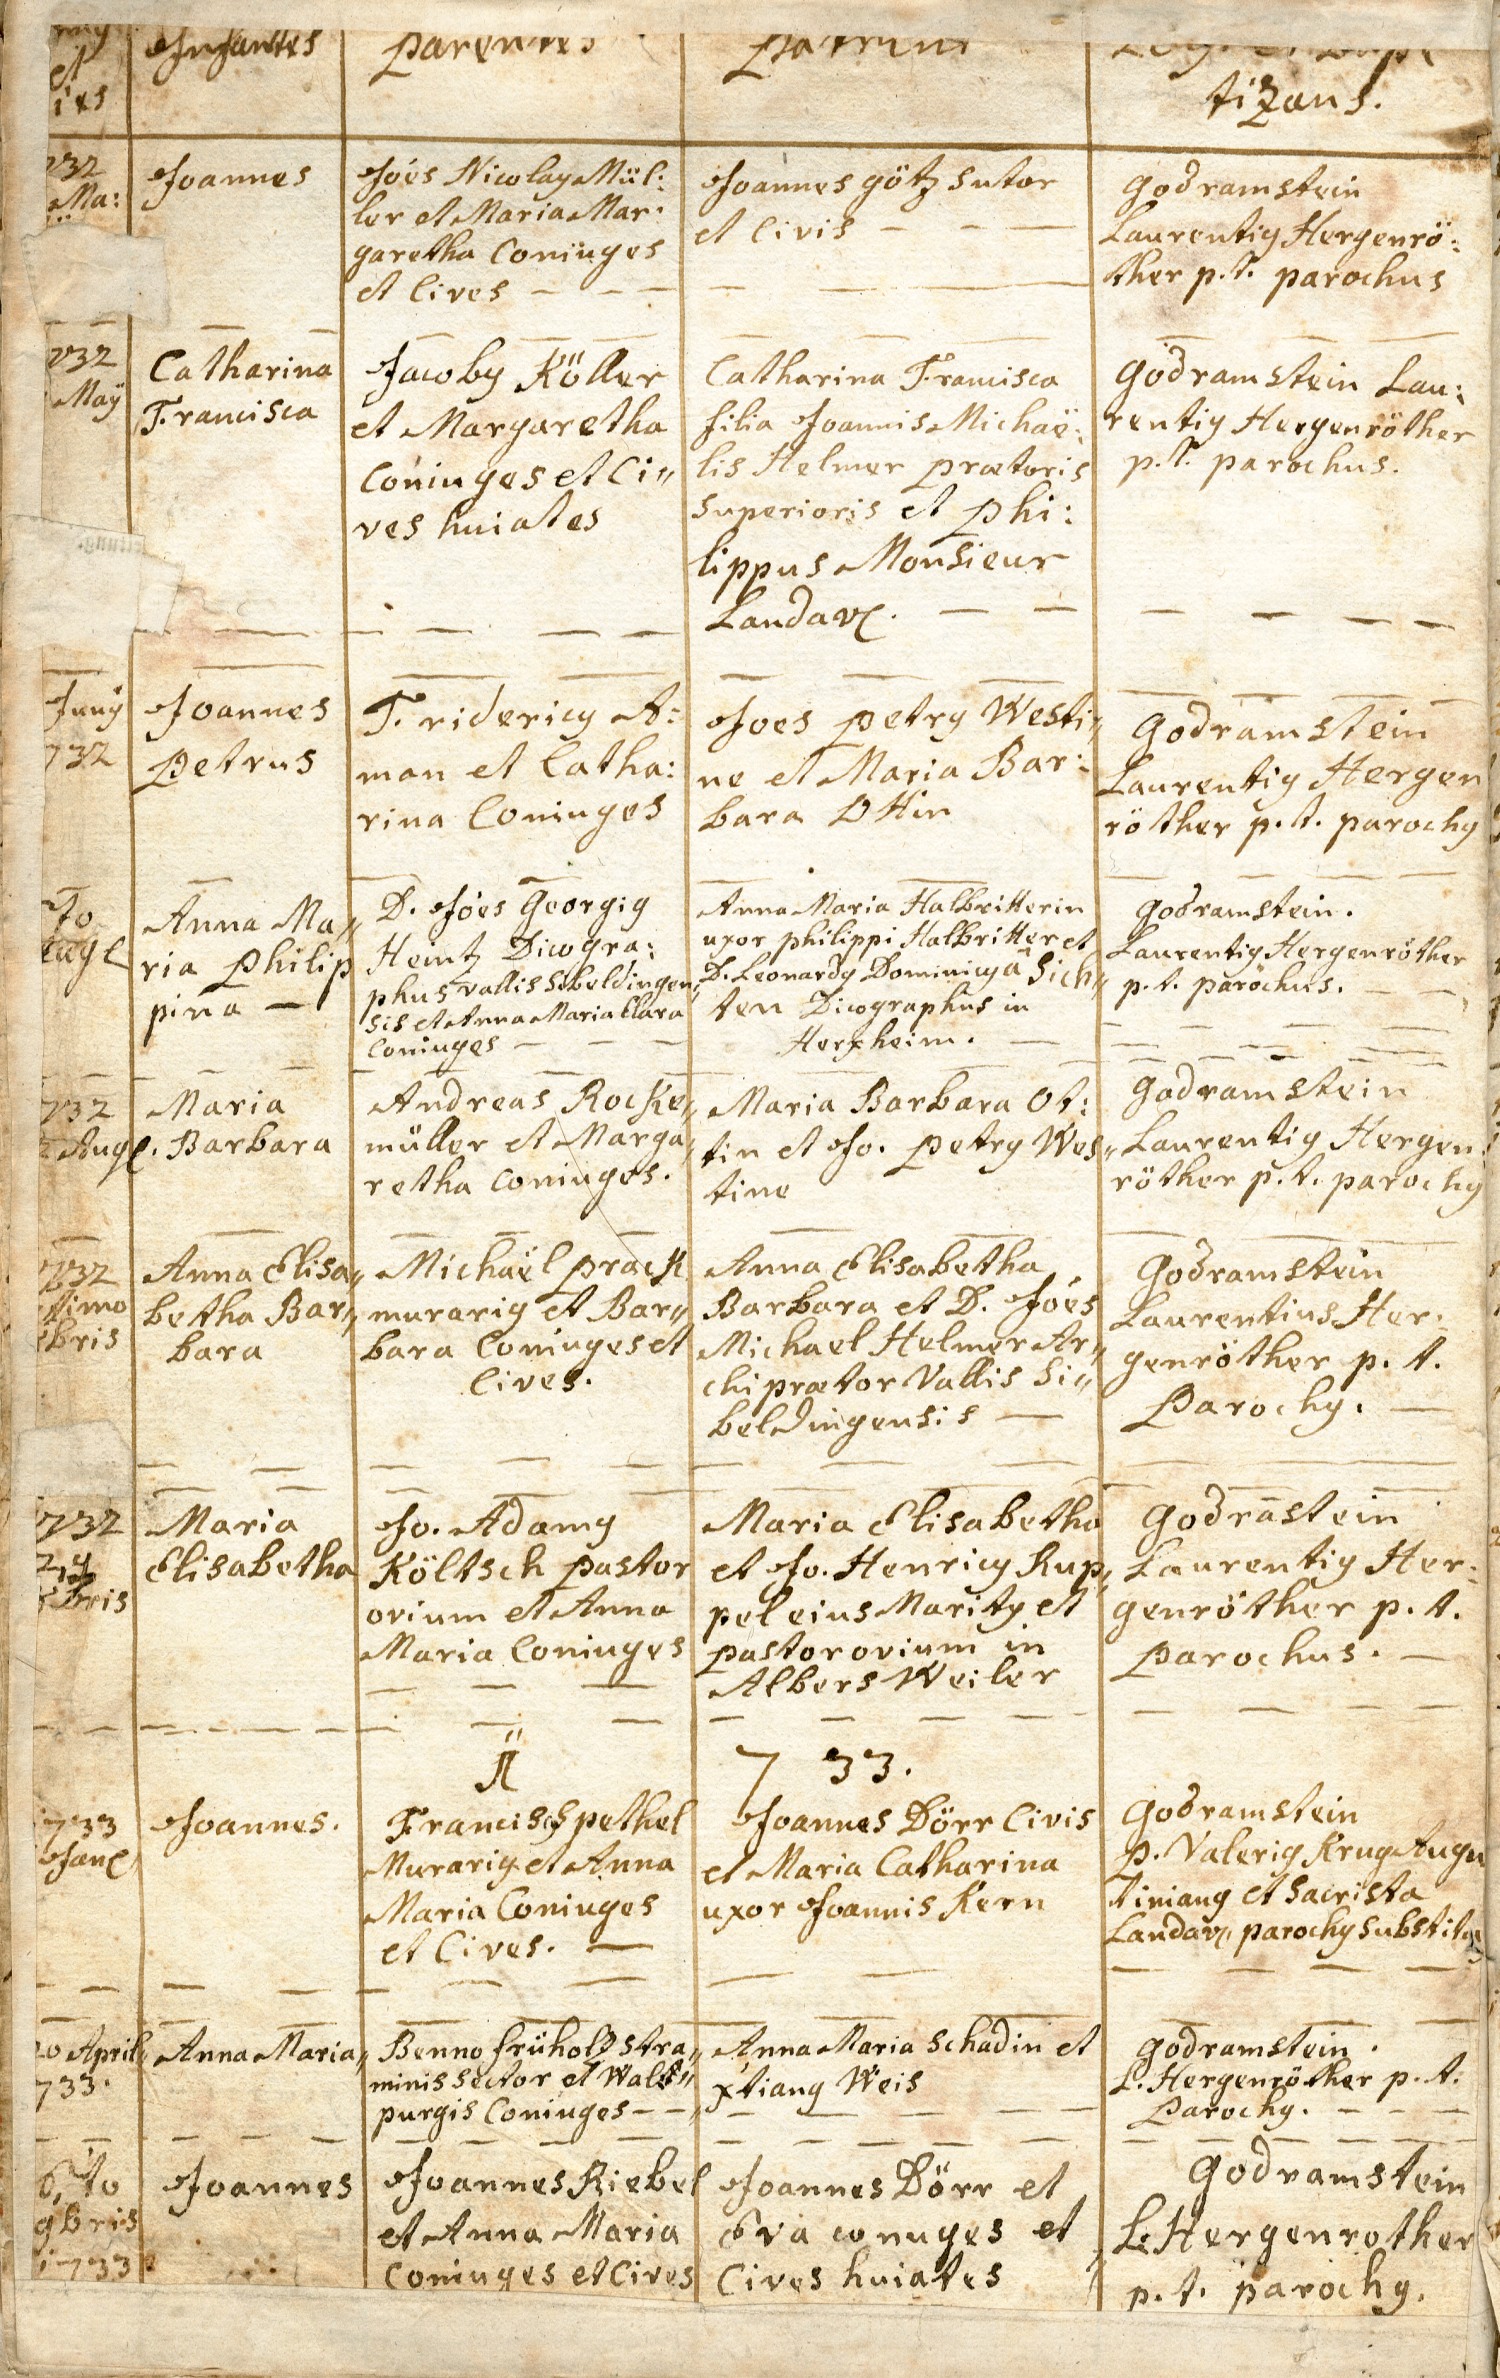 et
Infantes
Parentes
Patrini
tizans.
732
Ma:
Joannes
Jóes Nicolaÿ Mül:
ler et Maria Mar:
garetha Coniuges
et Cives
Joannes götz sutor
et Civis
godramstein
Laurentiÿ Hergenrö:
ther p.t. parochus
732
Maÿ
Catharina
Francisca
Jacobÿ Köller
et Margaretha
Coniuges et Ci„
ves huiates
Catharina Francisca
filia Joannis Michaë:
lis Helmer prætoris
superioris et Phi:
lippus Monsieur
Landav.
godramstein Lau:
rentiÿ Hergenröther
p.t. parochus.
Junÿ
732
Joannes
Petrus
Fridericÿ A:
man et Catha:
rina Coniuges
Joes Petrÿ Westi„
ne et Maria Bar:
bara Ottin
godramstein
Laurentiÿ Hergen
röther p.t. parochÿ
Anna Ma„
ria Philip
pina
D. Jóes Georgiÿ
Heintz Dicogra:
phus vallis Sibeldingen„
sis et Anna Maria Clara
Coniuges
Anna Maria Halbritterin
uxor philippi Halbritter et
D. Leonardÿ Dominicÿ á Sich„
ten Dicographus in
Herxheim.
godramstein.
Laurentiÿ Hergenröther
p.t. parochus.
732
Aug.
Maria
Barbara
Andreas Rocke„
müller et Marga„
retha Coniuges.
Maria Barbara Ot:
tin et Jo. Petrÿ Wes„
tine
godramstein
Laurentiÿ Hergen
röther p.t. parochÿ
732
timo
bris
Anna Elisa„
betha Bar„
bara
Michaël Prack
murariÿ et Bar„
bara Coniuges et
Cives.
Anna Elisabetha
Barbara et D. Jóes
Michael Helmer Ar„
chiprætor Vallis Si„
beldingensis
godramstein
Laurentius Her:
genröther p.t.
Parochÿ.
732
bris
Maria
Elisabetha
Jo. Adamÿ
Költsch pastor
ovium et Anna
Maria Coniuges
Maria Elisabetha
et Jo. Henricÿ Rup„
pel eius Maritÿ et
pastor ovium in
Albersweiler
godrãstein
Laurentiÿ Her:
genröther p.t.
Parochus.
733.
733
Joannes.
Franciscÿ Spethel
Murariÿ et Anna
Maria Coniuges
et Cives.
Joannes Dörr Civis
et Maria Catharina
uxor Joannis Kern
godramstein
P. Valeriÿ Krug Augu
tinianÿ et Sacrista
Landav. parochÿ substitÿ
20 April
733.
Anna Maria„
Benno frühold stra„
minis sector et Wald„
purgis Coniuges
Anna Maria Schadin et
xtianÿ Weis
godramstein.
L. Hergenröther p.t.
Parochÿ.
6,to
9bris
1733
Joannes
Joannes Riebel
et Anna Maria
Coniuges et Cives
Joannes Dörr et
Eva coniuges et
Cives huiates
godramstein
L. Hergenrother
p.t. parochÿ.